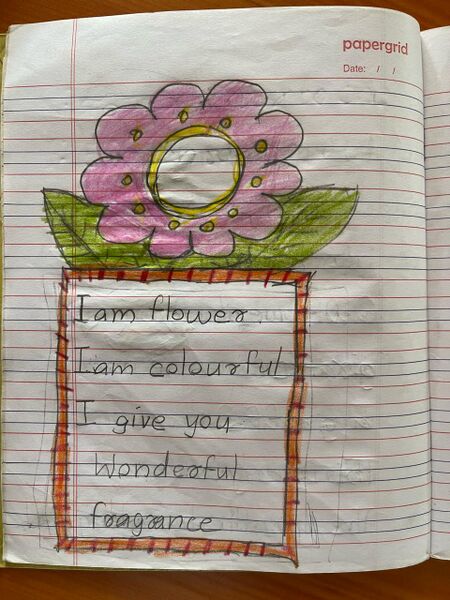 papergrid
Date: / /
I am flower.
I am colourful
I give you
Wonderful
fragrance